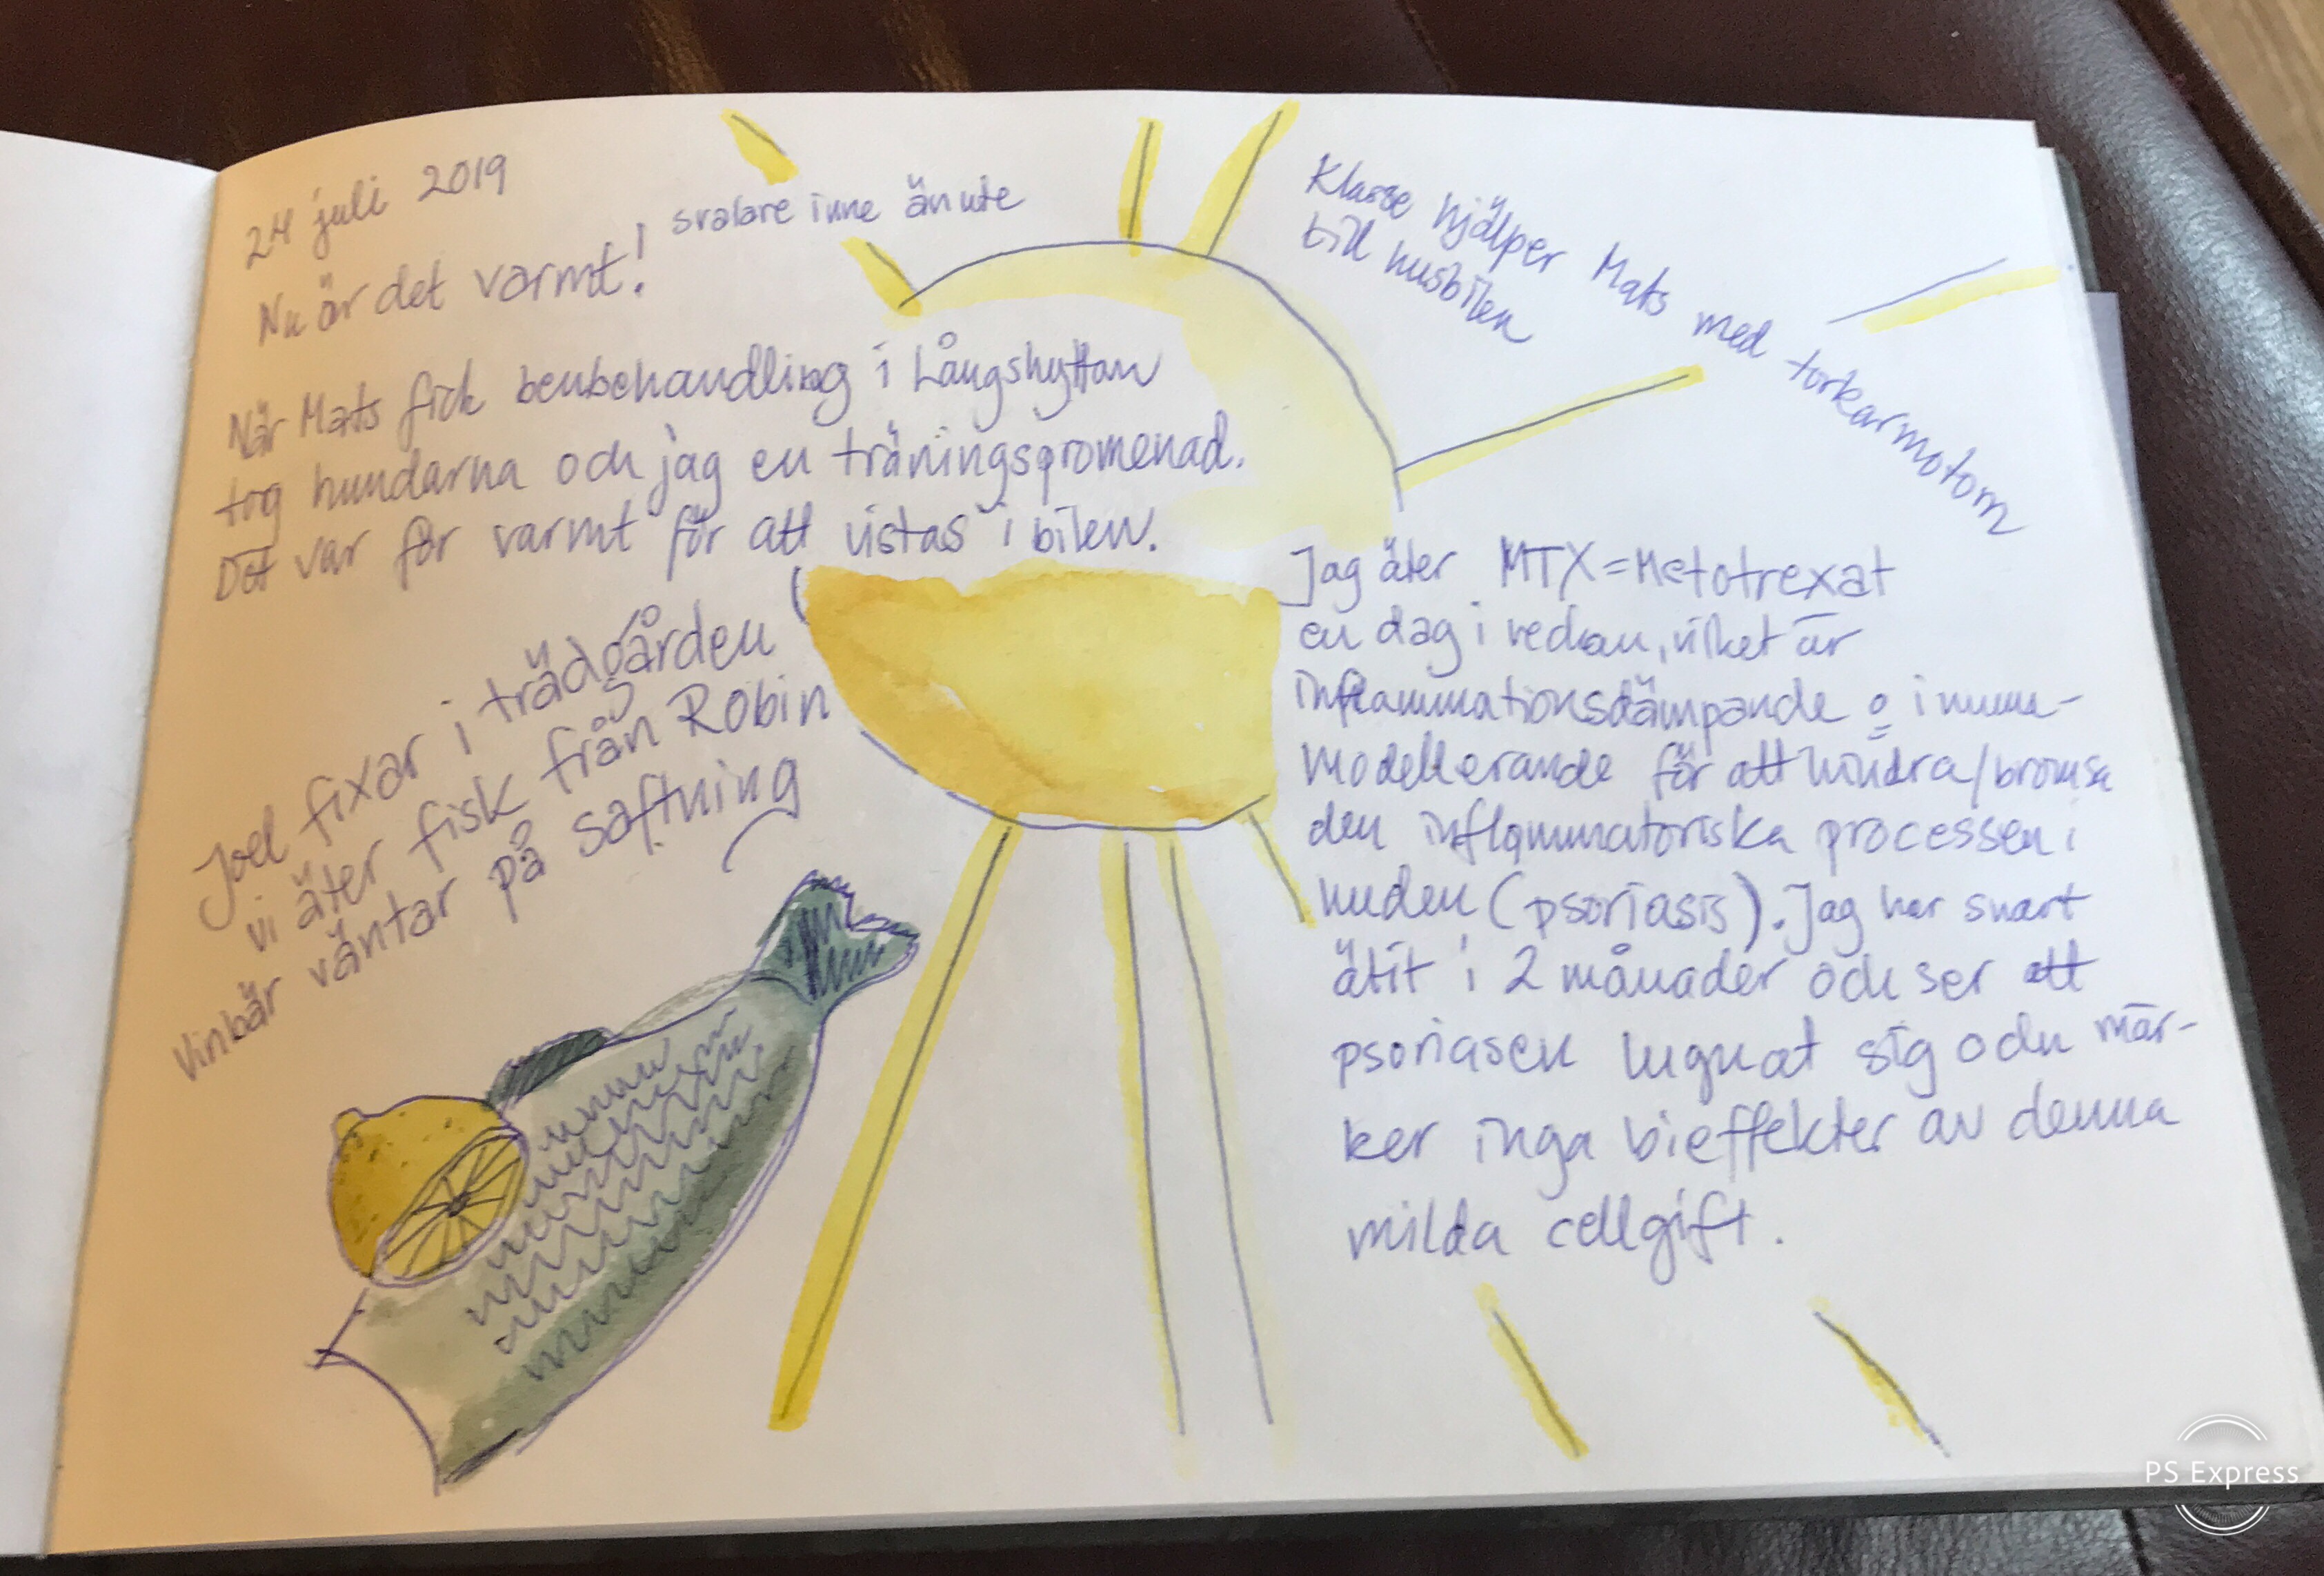 24 juli 2019
Nu är det varmt!
svalare inne än ute
När Mats fick benbehandling i Långshyttan
tog hundarna och jag en träningspromenad.
Det var för varmt för att vistas i bilen.
Joel fixar i trädgården
vi äter fisk från Robin
Vinbär väntar på saftning
Klasse hjälper Mats med torkarmotorn
till husbilen
Jag äter MTX=Metotrexat
en dag i veckan, vilket är
inflammationsdämpande o immu-
modellerande för att hindra/bromsa
den inflammatoriska processen i
huden (psoriasis). Jag har snart
ätit i 2 månader och ser att
psoriasen lugnat sig och mär-
ker inga bieffekter av denna
milda cellgift.
PS Express